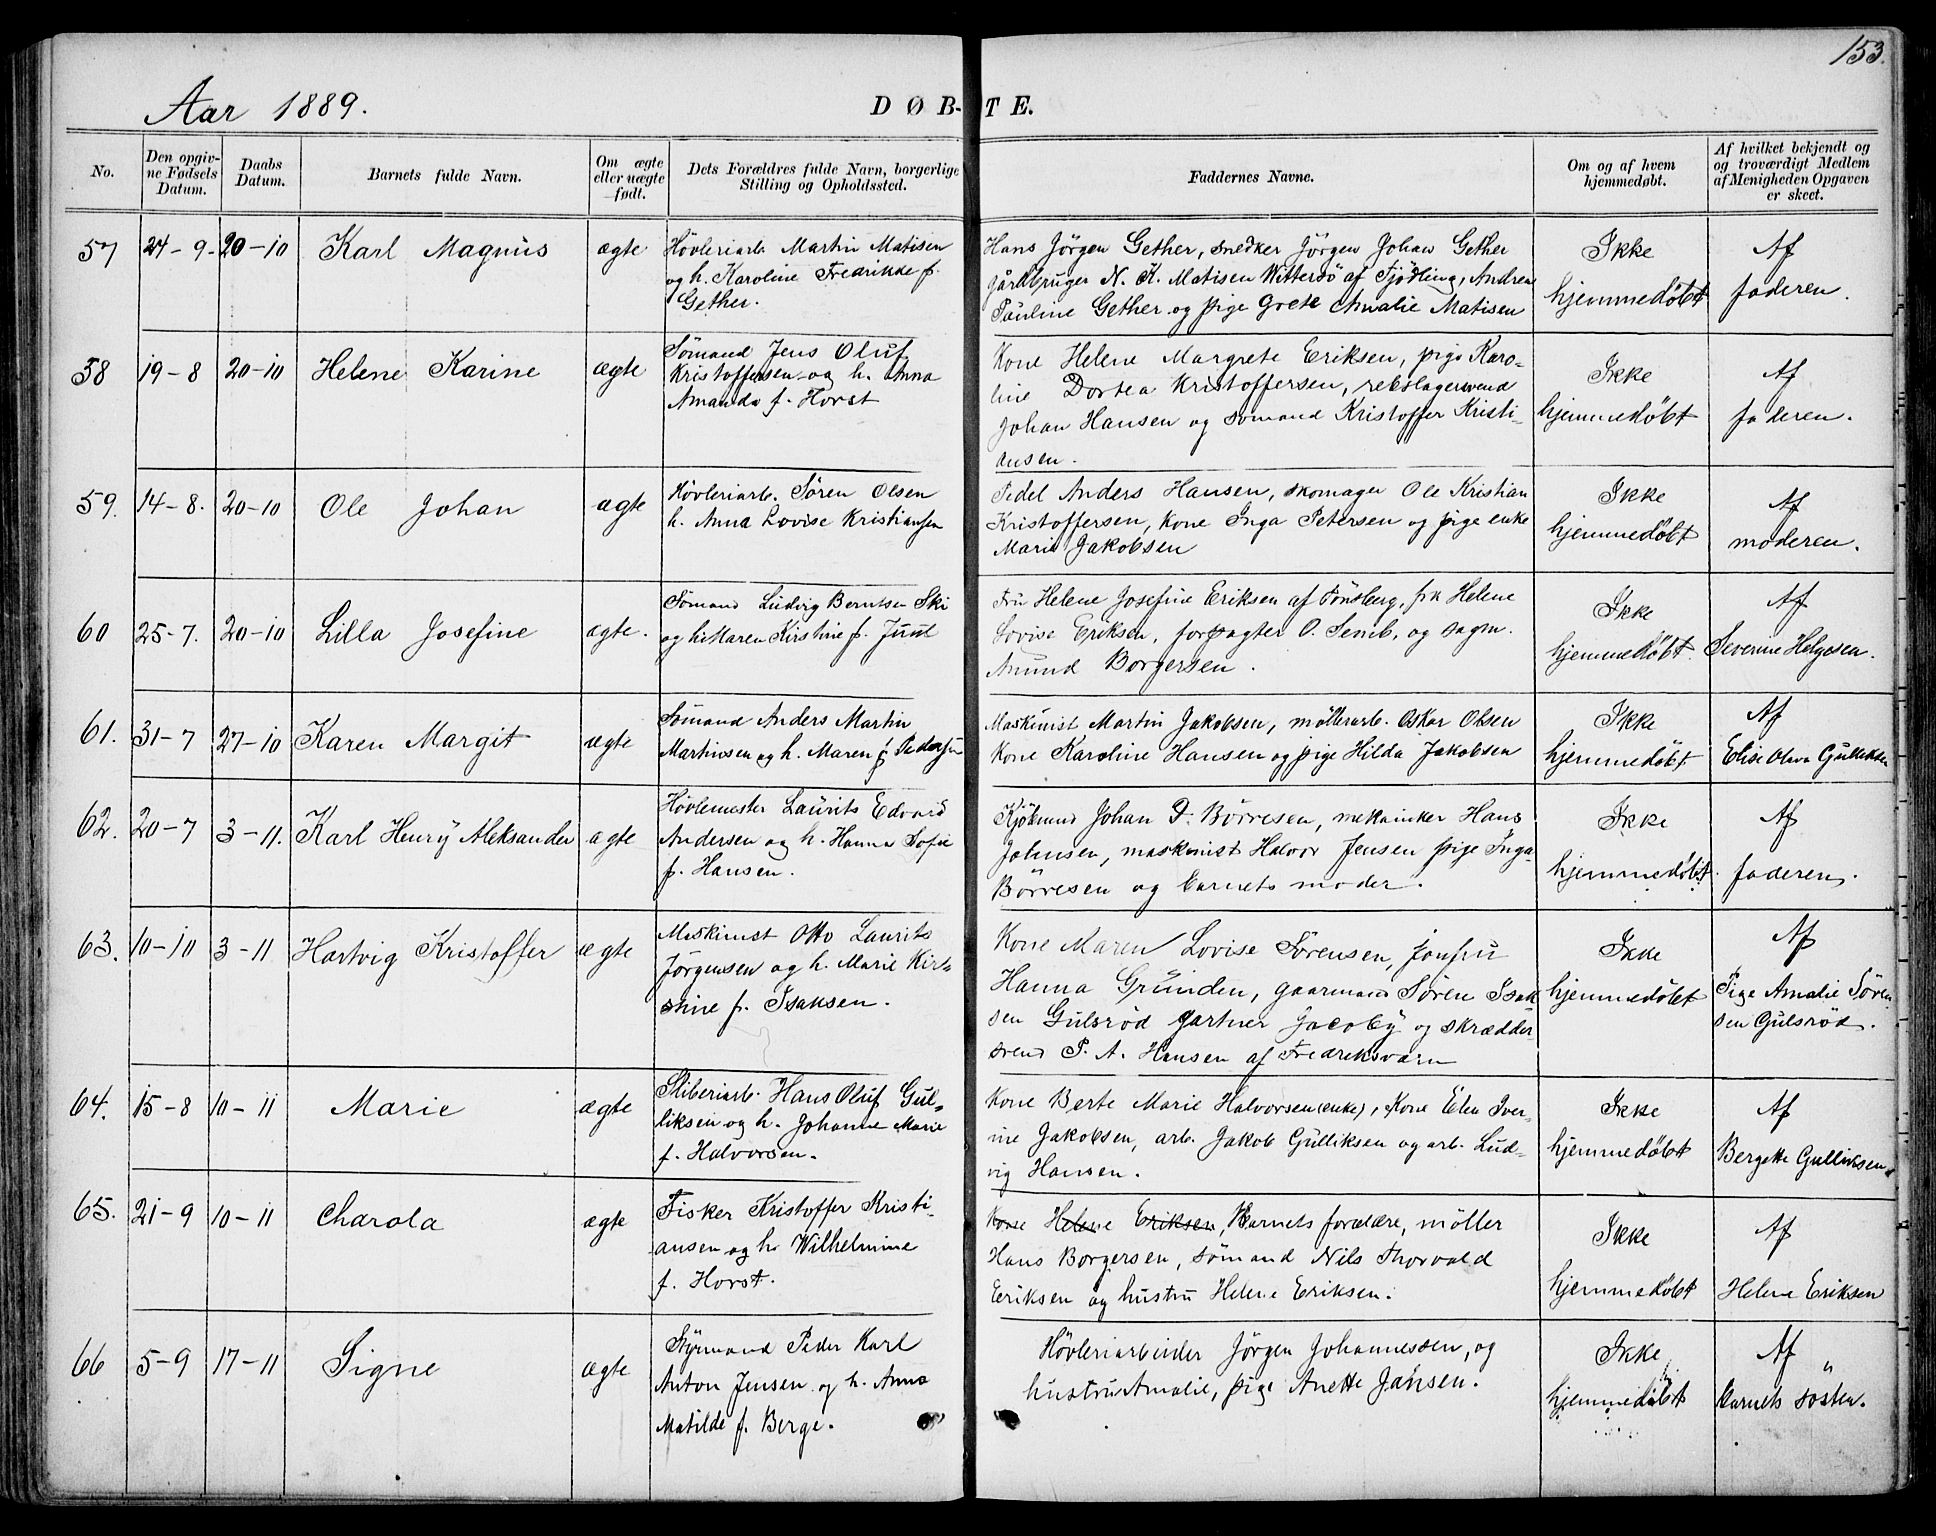 153.
Aar 1889.
DØB-TE.
No.
Den opgiv-
ne Fødsels
Datum.
Daabs
Datum.
Barnets fulde Navn.
Om ægte
eller uægte
født.
Dets Forældres fulde Navn, borgerlige
Stilling og Opholdssted.
Faddernes Navne.
Om og af hvem
hjemmedøbt.
Af hvilket bekjendt og
og troværdigt Medlem
af Menigheden Opgaven
er skeet.
57 24-9- 20-10 Karl Magnus ægte
Høvleriarb. Martin Matisen
og h. Karoline Fredrikke f.
Gether.
Hans Jörgen Gether, snedker Jörgen Johan Gether
gårdbruger N. K. Matisen Wittersö af Tjödling, Andrea
Pauline Gether og pige Grete Amalie Matisen
Ikke
hjemmedöbt
Af
faderen.
58 19-8 20-10 Helene Karine ægte
Sömand Jens Oluf
Kristoffersen og h. Anna
Amanda f. Horst
Kone Helene Margrete Eriksen, pige Karo-
line Dortea Kristoffersen, rebslagersvend
Johan Hansen og sömand Kristoffer Kristi-
ansen.
Ikke
hjemmedöbt
Af
faderen.
59. 14-8. 20-10 Ole Johan ægte
Høvleriarb. Sören Olsen
h. Anna Lovise Kristiansen
Pedel Anders Hansen, skomager Ole Kristian
Kristoffersen, Kone Inga Petersen og pige enke
Marie Jakobsen
Ikke
hjemmedöbt
Af
moderen.
60 25-7. 20-10 Lilla Josefine ægte.
Sömand Ludvig Berntsen Ski
og h. Maren Kirstine f. Juul
Fru Helene Josefine Eriksen af Tönsberg, frk Helene
Lovise Eriksen, forpagter O. Semb, og sagm.
Amund Borgersen.
Ikke
hjemmedöbt.
Af
Severine Helgesen.
61. 31-7 27-10 Karen Margit ægte
Sömand Anders Martin
Martinsen og h. Maren f. Pedersen
Maskinist Martin Jakobsen, möllerarb. Oskar Olsen
Kone Karoline Hansen og pige Hilda Jakobsen
Ikke
hjemmedöbt
Af
Elise Olava Gulliksen
62. 20-7 3-11. Karl Henry Aleksander ægte
Høvlemester Laurits Edvard
Andersen og h. Hanna Sofie
f. Hansen.
Kjöbmand Johan D. Börresen, mekaniker Hans
Johnsen, maskinist Halvor Jensen pige Inga
Börresen og barnets moder.
Ikke
hjemmedöbt.
Af
faderen.
63. 10-10 3-11 Hartvig Kristoffer ægte
Maskinist Otto Laurits
Jörgensen og h. Marie Kir-
stine f. Isaksen.
Kone Maren Lovise Sörensen, jomfru
Hanna Gründen, gaarmand Sören Isak
sen Gulsröd gartner Jacoby og skrædder
svend P. A. Hansen af Fredriksværn
Ikke
hjemmedöbt
Af
Pige Amalie Sören
sen Gulsröd.
64. 15-8 10-11 Marie ægte
Sliberiarb. Hans Oluf Gul-
liksen og h. Johanne Marie
f. Halvorsen.
Kone Berte Marie Halvorsen (enke), Kone Elen Iver-
ine Jakobsen, arb. Jakob Gulliksen og arb. Lud-
vig Hansen.
Ikke
hjemmedöbt
Af
Bergette Gulliksen
65. 21-9 10-11 Charola ægte
Fisker Kristoffer Kristi-
ansen og h. Wilhelmine
f. Horst.
Kone Helene Eriksen, Barnets forældre, möller
Hans Borgersen, sömand Nils Thorvald
Eriksen og hustru Helene Eriksen.
Ikke
hjemmedöbt
Af
Helene Eriksen
66 5-9 17-11 Signe ægte
Styrmand Peder Karl
Anton Jensen og h. Anna
Matilde f. Berge.
Høvleriarbeider Jörgen Johannessen, og
hustru Amalie, pige Anette Jansen.
Ikke
hjemmedöbt
Af
barnets söster.